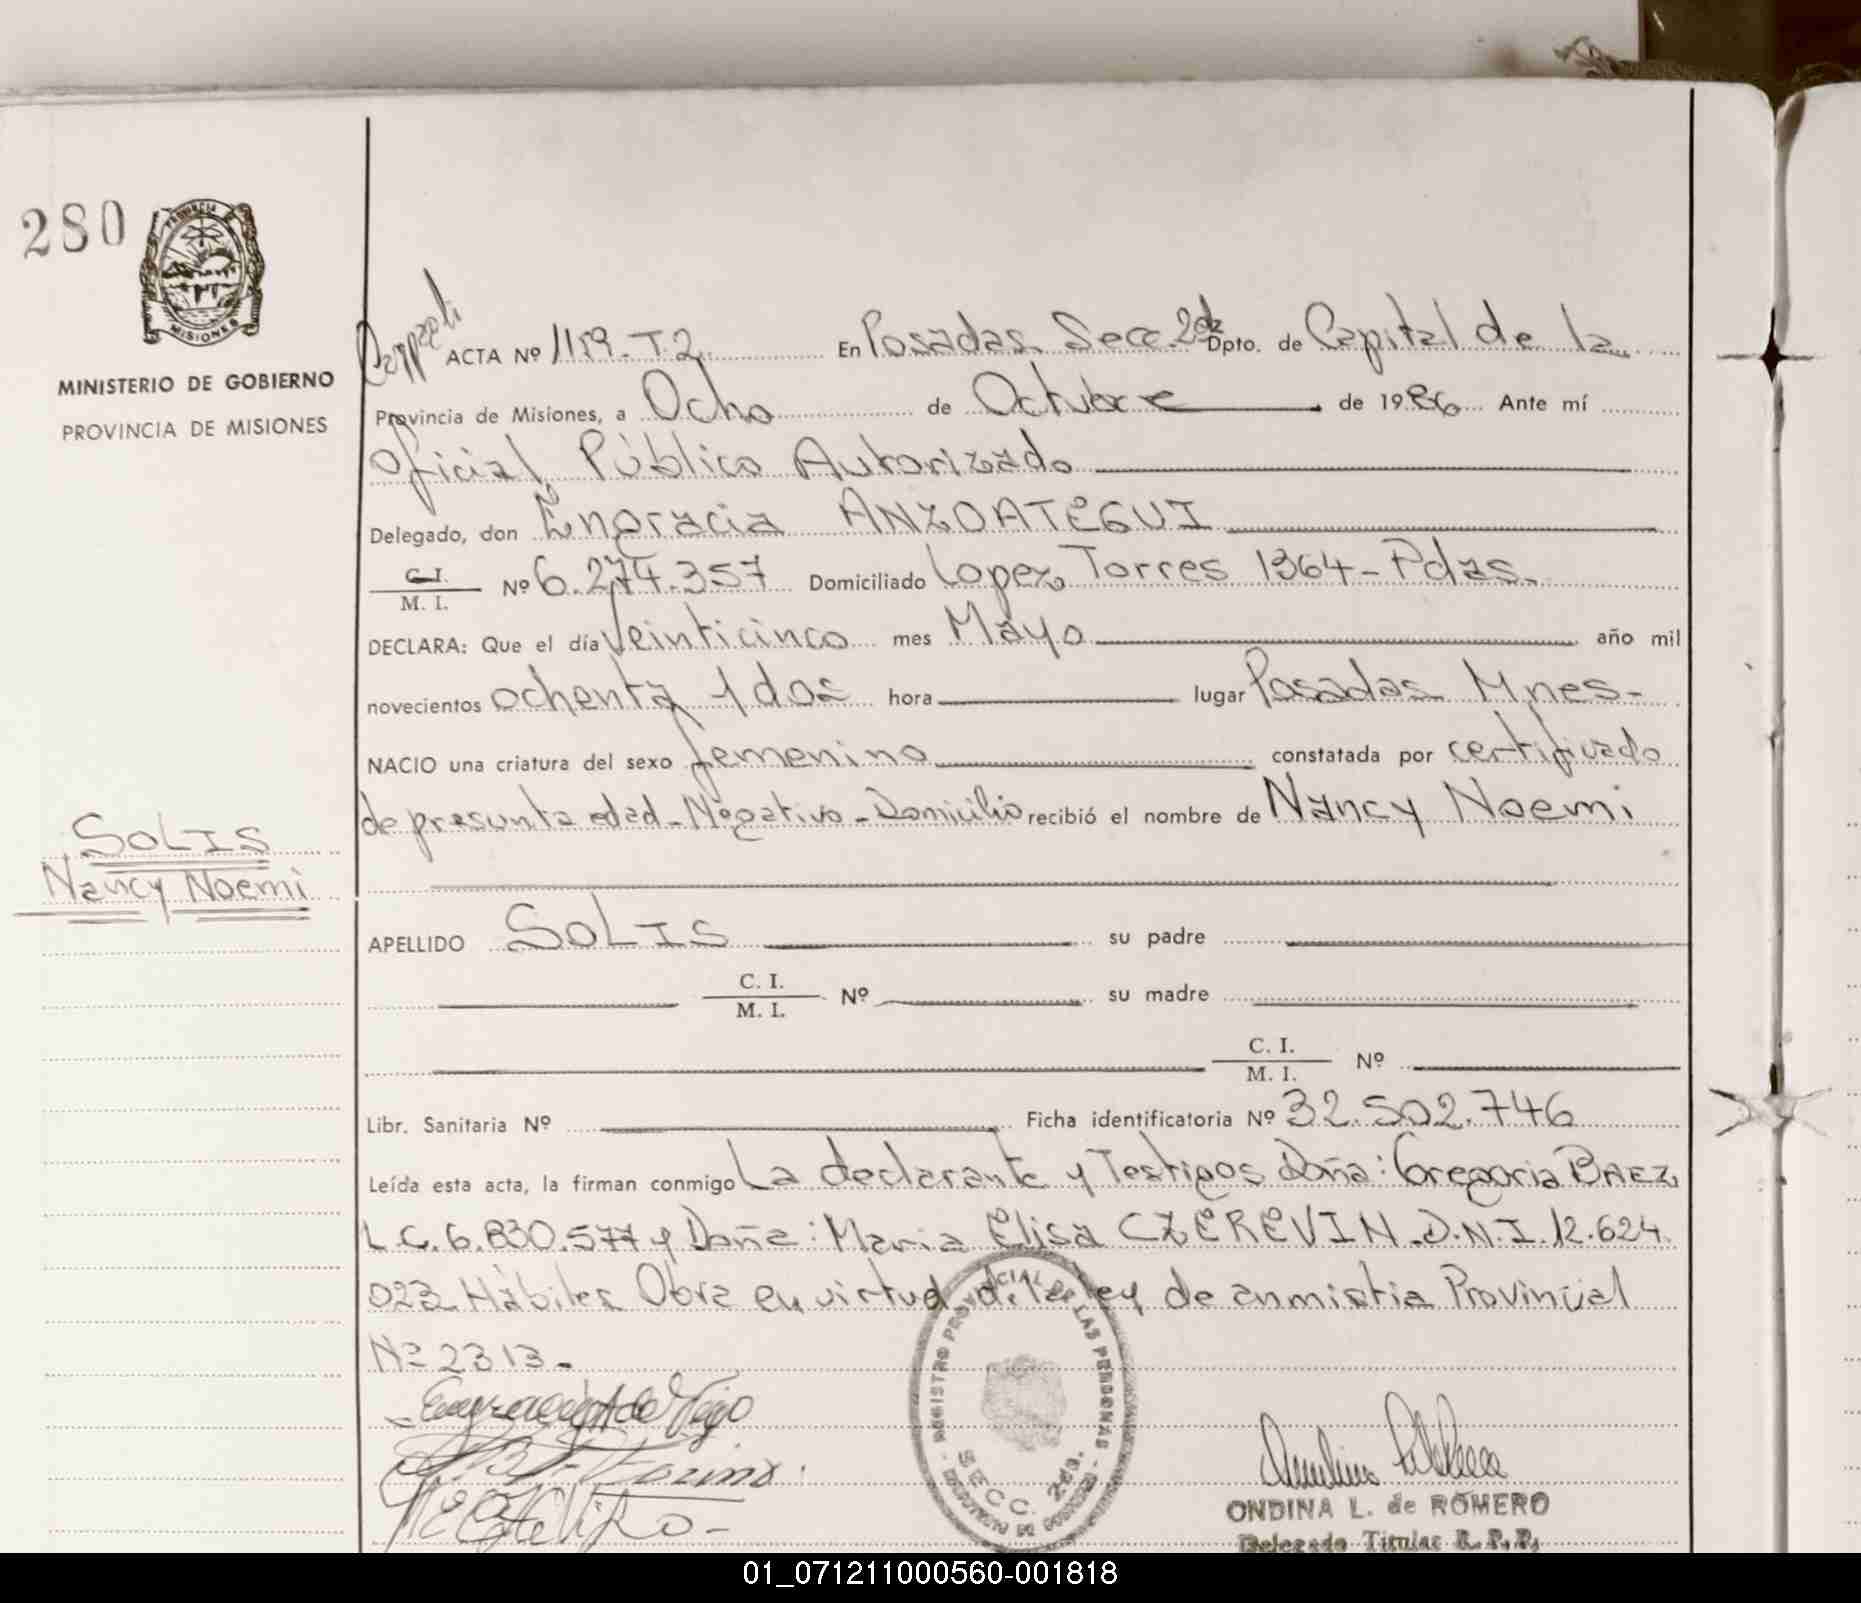 280
PROVINCIA DE
MISIONES
MINISTERIO DE GOBIERNO
PROVINCIA DE MISIONES
SOLIS
Nancy Noemi
ACTA Nº 1159-T2 En Posadas Secc 2da Dpto. de Capital de la
Provincia de Misiones, a Ocho de Octubre de 1986 Ante mí
Oficial Público Autorizado
Delegado, don Engracia ANZOATEGUI
C.I.
M. I. Nº 6.274.357 Domiciliado Lopez Torres 1364-Pdas.
DECLARA: Que el día Veinticinco mes Mayo año mil
novecientos ochenta y dos hora lugar Posadas Mnes-
NACIO una criatura del sexo femenino constatada por certificado
de presunta edad-Negativo-Domicilio recibió el nombre de Nancy Noemi
APELLIDO SOLIS su padre
C. I.
M. I. Nº su madre
C. I.
M. I. Nº
Libr. Sanitaria Nº Ficha identificatoria Nº 32.502.746
Leída esta acta, la firman conmigo La declarante y Testigos Doña: Gregoria BAEZ
L.C. 6.830.577 y Doña: Maria Elisa CZEREVIN-D.N.I. 12.624.
023 Hábiles Obra en virtud de la ley de anmistia Provincial
Nº 2313.-
REGISTRO PROVINCIAL DE LAS PERSONAS
SECC. 2da.
ONDINA L. de ROMERO
Delegado Titular R.P.P.
01_071211000560-001818